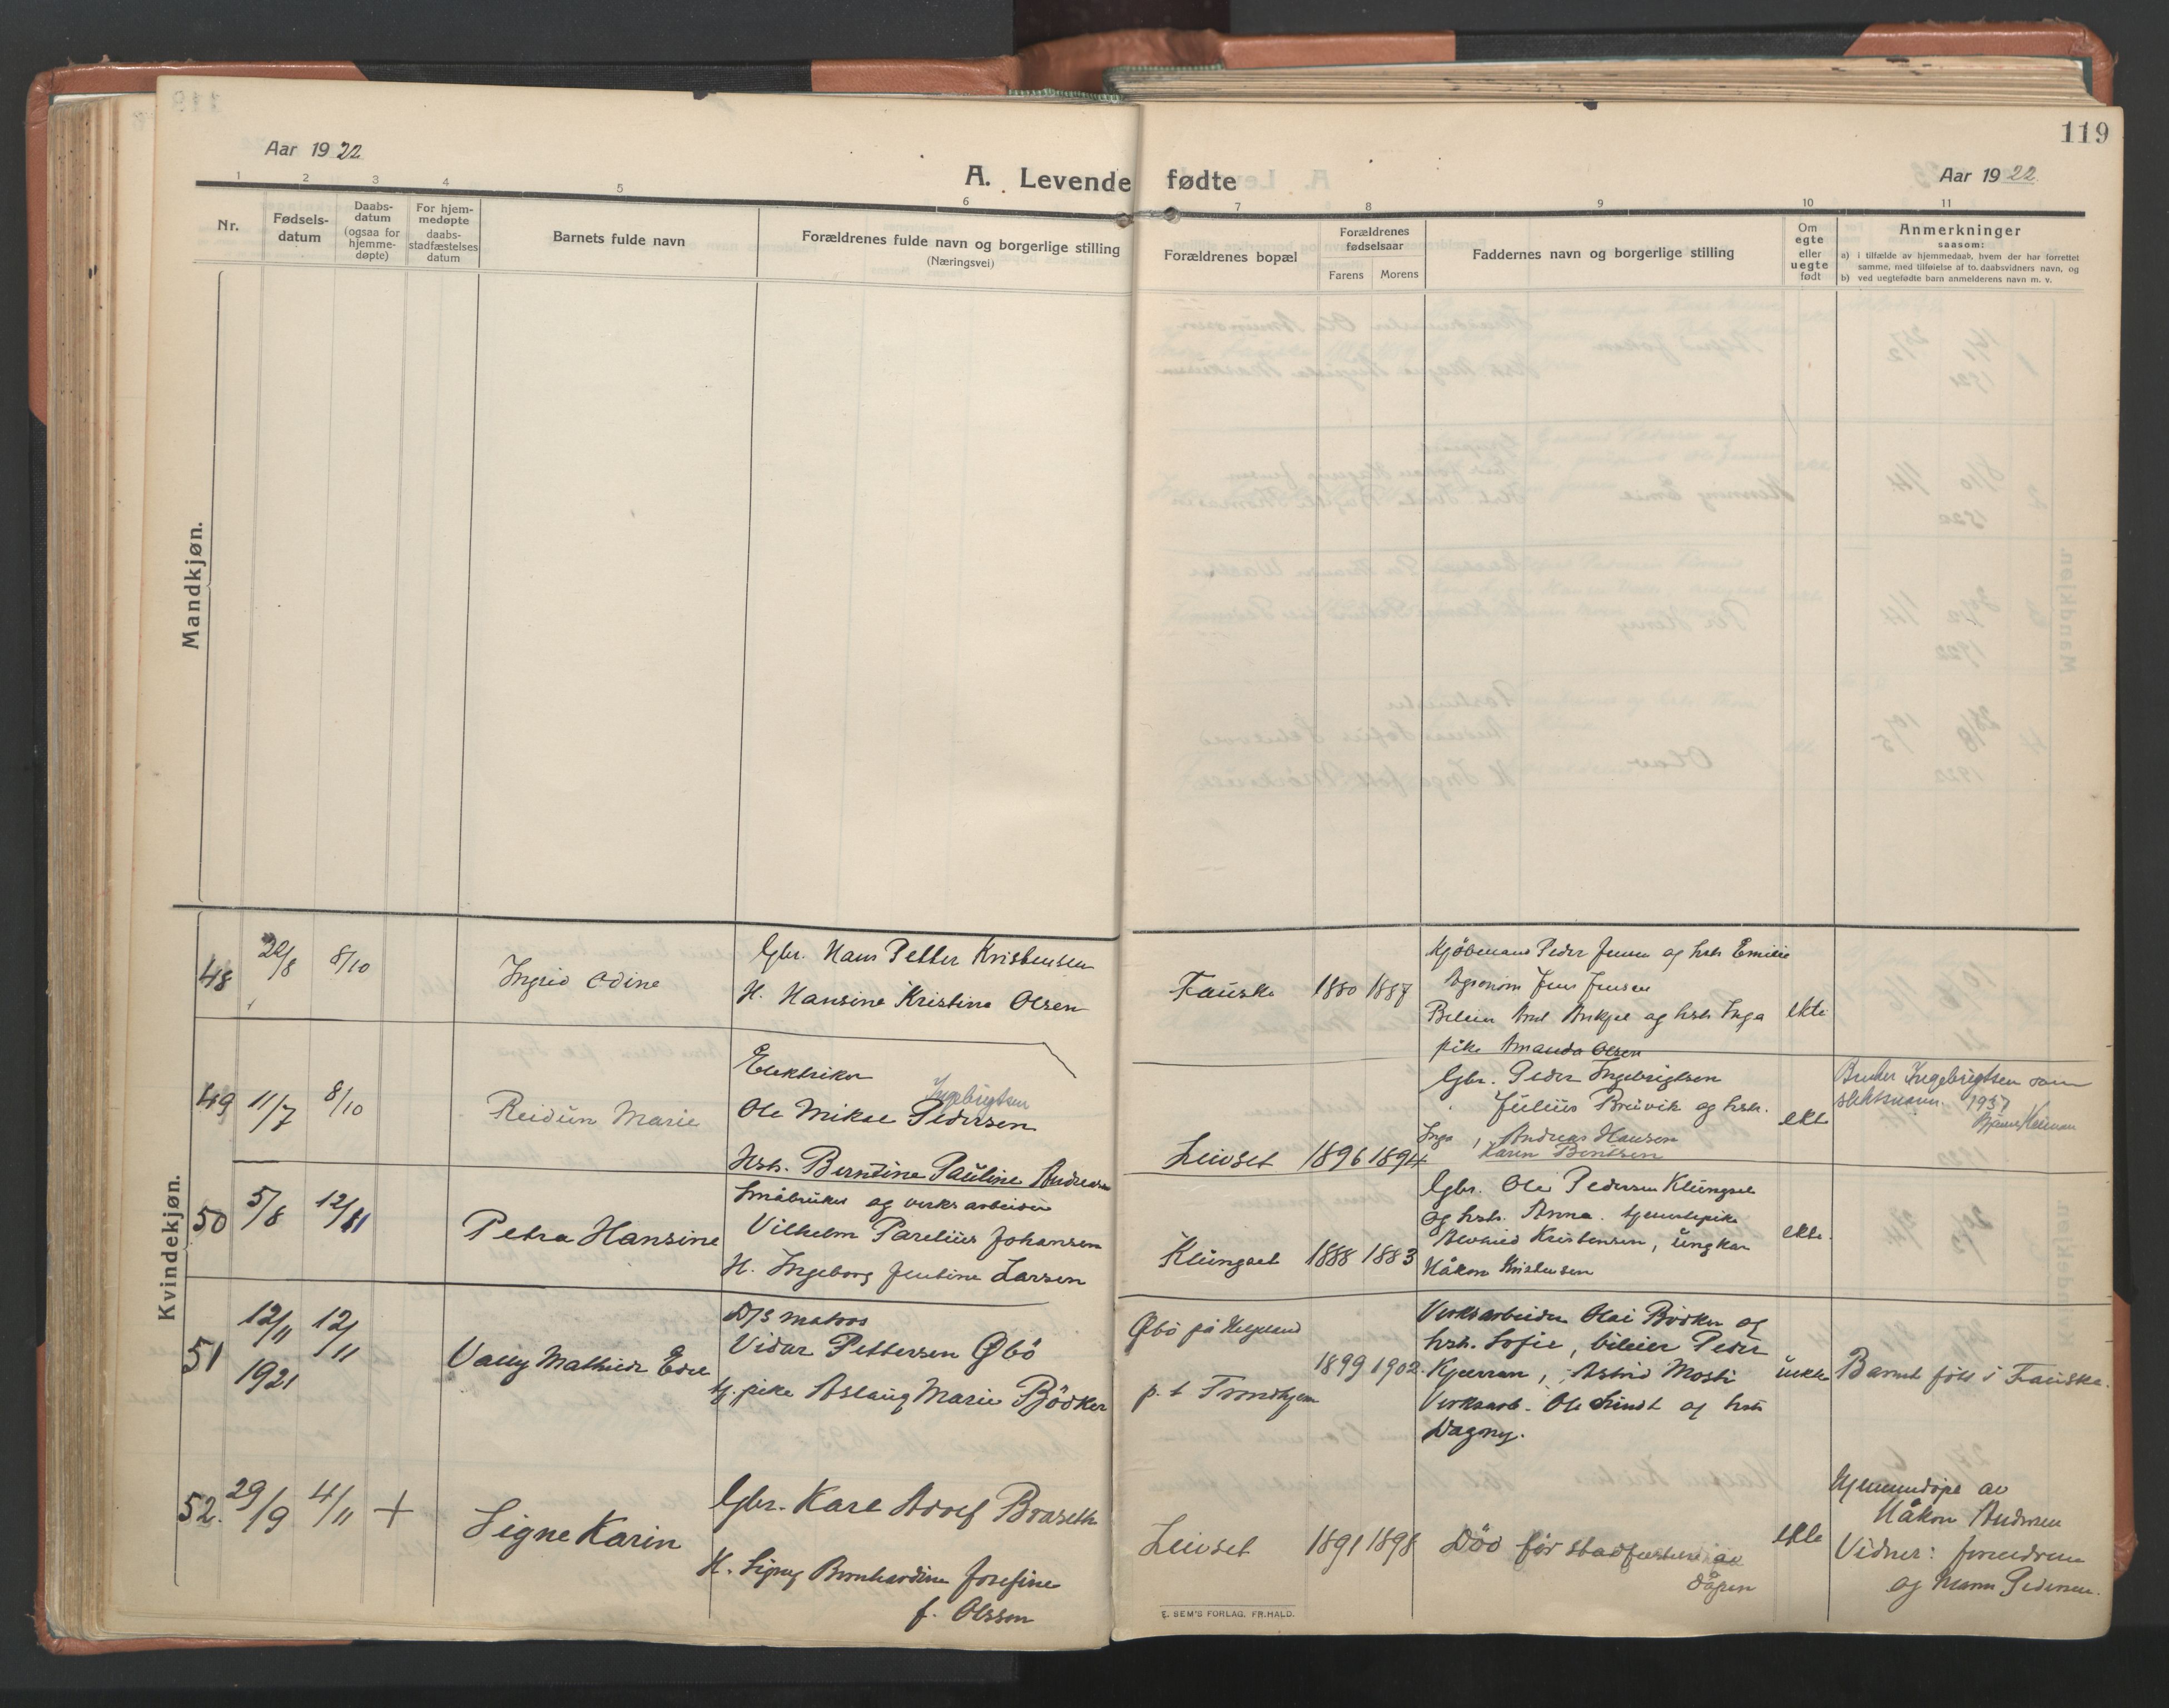 119
Aar 1922
A. Levende fødte
Aar 1922
1 2 3 4 5 6 7 8 9 10 11
Nr.
Fødsels-
datum
Daabs-
datum
(ogsaa for
hjemme-
døpte)
For hjem-
medøpte
daabs-
stadfæstelses
datum
Barnets fulde navn
Forældrenes fulde navn og borgerlige stilling
(Næringsvei)
Forældrenes bopæl
Forældrenes
fødselsaar
Farens Morens
Faddernes navn og borgerlige stilling
Om
egte
eller
uegte
født
Anmerkninger
saasom:
a) i tilfælde av hjemmedaab, hvem der har forrettet
samme, med tilføielse af to daabsvidners navn, og
b) ved uegtefødte barn anmelderens navn m. v.
Mandkjøn.
Kvindekjøn.
48
8/10
Ingrid Odine
Gbr. Hans Petter Kristensen
H. Hansine Kristine Olsen
Fauske
1880 1887
Kjøbmand Peder Jensen og hstr Emilie
Agronom Jens Jensen
og hstr Inga
pike Amanda Olsen
ekte
49
11/7
8/10
Reidun Marie
Elektriker
Ingebrigtsen
Ole Mikal Pedersen
Hstr. Berntine Pauline Andreasen
Leivset
1896 1894
Gbr. Peder Ingebrigtsen
Julius Breivik og hstr.
Inga, Andreas Hansen
Karen Bentsen
ekte
Bruker Ingebrigtsen som
slektsnavn. 1937
50
5/8
12/11
Petra Hansine
Småbruker og verksarbeider
Vilhelm Parelius Johansen
H. Ingeborg Jentine Larsen
Klungset
1888 1883
Gbr. Ole Pedersen Klungset
og hstr. Anna. tjenestepike
Kristensen, ungkar
Håkon Kristensen
ekte.
51
12/11
1921
12/11
Vally Mathilde Edel
D/S matros
Vidar Pettersen Øbö
tj. pike Aslaug Marie Bödker
Øbö på Helgeland
p. t Trondhjem
1899 1902.
Verksarbeider Olai Bödker og
hstr. Sofie, bileier Peder
Kjerran, Astrid Mosti
Verksarb. Ole Lindt og hstr
Dagony.
uekte
Barnet født i Fauske.
52.
29/9
4/11
+
Signe Karin
Gbr. Karl Adolf Braseth
H. Signy Bernhardine Josefine
f. Olsson
Leivset
1891 1898
Död för stadfestelse av
dåpen
ekte
Hjemmedöpt av
Håkon Andersen
Vidner: foreldrene
og Maren Pedersen.
E. SEM'S FORLAG, FR.HALD.